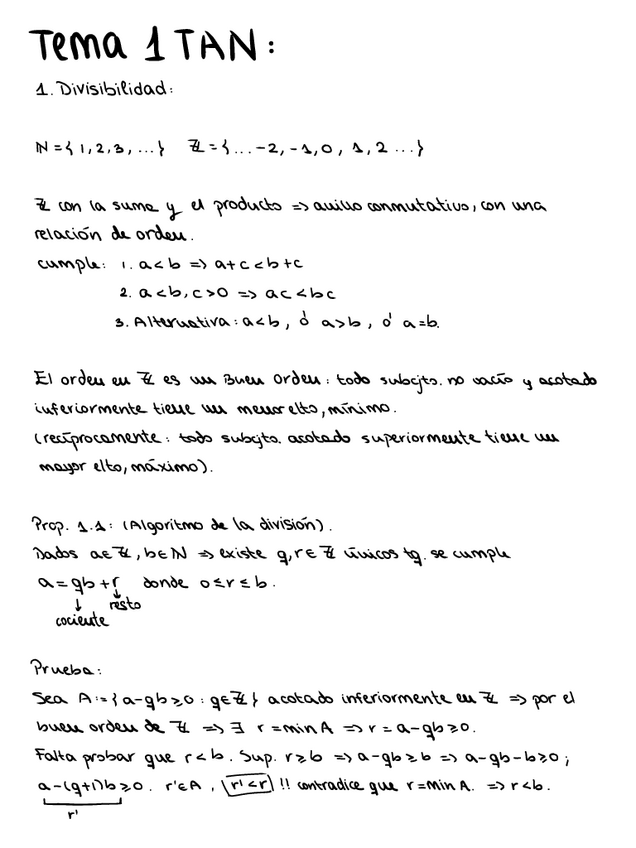 Tema 1 TAN:
1. Divisibilidad:
ℕ = { 1, 2, 3, ... } ℤ = { ... -2, -1, 0, 1, 2 ... }
ℤ con la suma y el producto => anillo conmutativo, con una
relación de orden.
cumple: 1. a < b => a+c < b+c
2. a < b, c > 0 => ac < bc
3. Alternativa: a < b, ó a > b, ó a = b.
El orden en ℤ es un Buen Orden: todo subcjto. no vacío y acotado
inferiormente tiene un menor elto, mínimo.
(recíprocamente: todo subcjto. acotado superiormente tiene un
mayor elto, máximo).
Prop. 1.1: (Algoritmo de la división).
Dados a∈ℤ, b∈ℕ => existe q, r∈ℤ únicos tq. se cumple
a = qb + r donde 0 ≤ r ≤ b.
↓ ↓
resto
cociente
Prueba:
Sea A := { a-qb ≥ 0 : q∈ℤ } acotado inferiormente en ℤ => por el
buen orden de ℤ => ∃ r = min A => r = a-qb ≥ 0.
Falta probar que r < b. Sup. r ≥ b => a-qb ≥ b => a-qb-b ≥ 0;
a-(q+1)b ≥ 0. r'∈A, r' < r !! contradice que r = min A. => r < b.
r'